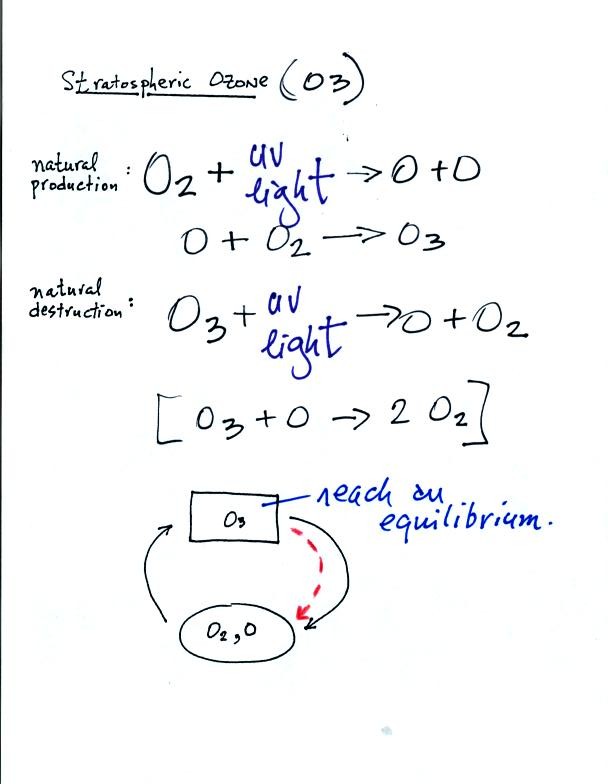 Stratospheric Ozone (O3)
natural production: O2 + uv light → O + O
O + O2 → O3
natural destruction: O3 + uv light → O + O2
[ O3 + O → 2 O2 ]
reach an
equilibrium.
O3
O2, O